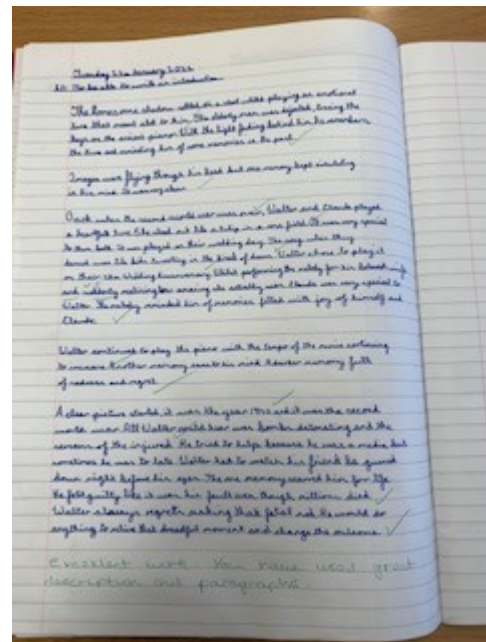 Tuesday 22nd January 2022
LO: To be able to write an introduction
The lonesome shadow sitted on a stool whilst playing an emotional
tune that meant alot to him. The elderly man was dejected, tracing the
keys on the ancient piano. With the light fading behind him he remembers
the tune and reminding him of some memories in the past.
Images were flying through his head but one memory kept
in his mind. It was very clear.
Back when the second world war was over, Walter and Claude played
a heartfelt tune. She stood out like a tulip in a rose field. It was very special
to them both. It was played on their wedding day. The way when they
danced was like birds tweeting in the break of dawn. Walter chose to play it
on their wedding anniversary. Whilst performing the melody for his beloved wife
and suddenly realising how amazing she actually was. Claude was very special to
Walter. The melody reminded him of memories filled with joy of himself and
Claude.
Walter continued to play the piano with the tempo of the music continuing
to increase. Another memory came to his mind. A darker memory full
of sadness and regret.
A clear picture started, it was the year 1942 and it was the second
world war. All Walter could hear was bombs detonating and the
screams of the injured. He tried to help because he was a medic, but
sometimes he was to late. Walter had to watch his friend be gunned
down right before his eyes. The one memory scarred him for life.
He felt guilty like it was his fault even though millions died.
Walter always regrets making that fatal He would do
anything to relive that dreadful moment and change the outcome.
Excellent work You have used great
description and paragraphs.